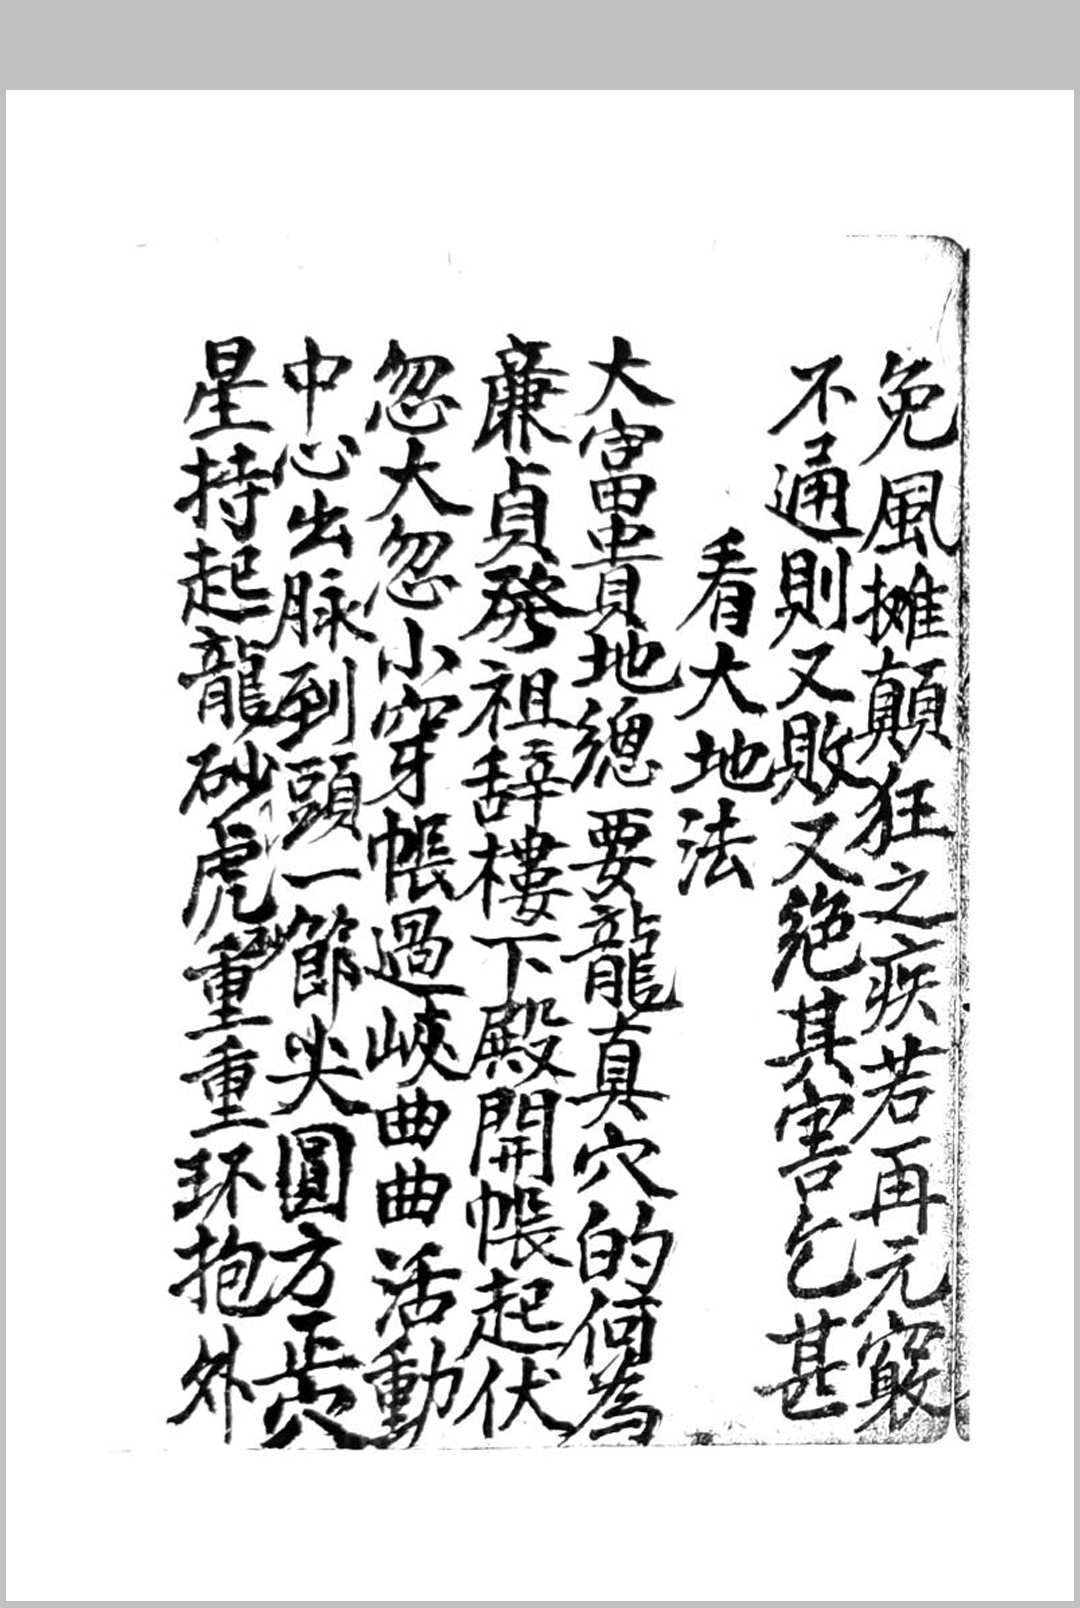 免風摊顛狂之疾若再元竅
不通則又敗又绝其害乞甚
看大地法
大富貴地總要龍真穴的何為
廉貞發祖辞樓下殿開帳起伏
忽大忽小穿帳過峽曲曲活動
中心出脉到頭一節尖圓方正穴
星持起龍砂虎砂重重环抱外